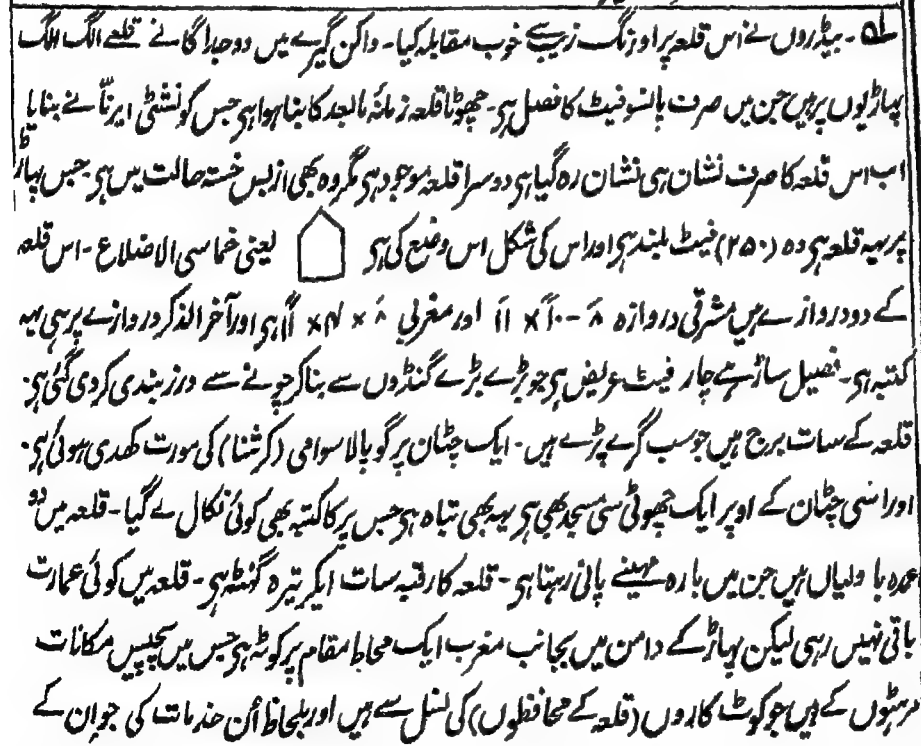 ے - بیڈروں نے اس قلعہ پر اورنگ زیب سے خوب مقابلہ کیا - واکن گیرے میں دو جداگانے قلعے الگ الگ
پہاڑیوں پر ہیں جن میں صرف پانسو فیٹ کا فصل ہی - چھوٹا قلعہ زمانۂ مابعد کا بنا ہوا ہی جس کو نشٹی ایرنّا نے بنایا تھا
اب اس قلعہ کا صرف نشان ہی نشان رہ گیا ہی دوسرا قلعہ موجود ہی مگر وہ بھی ازبس خستہ حالت میں ہی جس پہاڑ
پر یہہ قلعہ ہی وہ (۲۵۰) فیٹ بلند ہی اور اس کی شکل اس وضع کی ہی یعنی خماسی الاضلاع - اس قلعہ
کے دو دروازے ہیں مشرقی دروازہ اور مغربی ہی اور آخر الذکر دروازے پر ہی یہہ
کتبہ ہی - فصیل ساڑھے چار فیٹ عریض ہی جو بڑے بڑے گنڈوں سے بنا کر چونے سے درز بندی کر دی گئی ہی -
قلعہ کے سات برج ہیں جو سب گرے پڑے ہیں - ایک چٹان پر گوپالا سوامی (کرشنا) کی مورت کھدی ہوئی ہی -
اور اسی چٹان کے اوپر ایک چھوٹی سی مسجد بھی ہی یہہ بھی تباہ ہی جس پر کا کتبہ بھی کوئی نکال لے گیا - قلعہ میں دو
عمدہ باولیاں ہیں جن میں بارہ مہینے پانی رہتا ہی - قلعہ کا رقبہ سات ایکر تیرہ گنٹہ ہی - قلعہ میں کوئی عمارت
باقی نہیں رہی لیکن پہاڑ کے دامن میں بجانب مغرب ایک محاط مقام پر کوٹہ ہی جس میں پچیس مکانات
مرہٹوں کے ہیں جو کوٹ کاروں (قلعہ کے محافظوں) کی نسل سے ہیں اور بلحاظ اُن خدمات کی جو ان کے